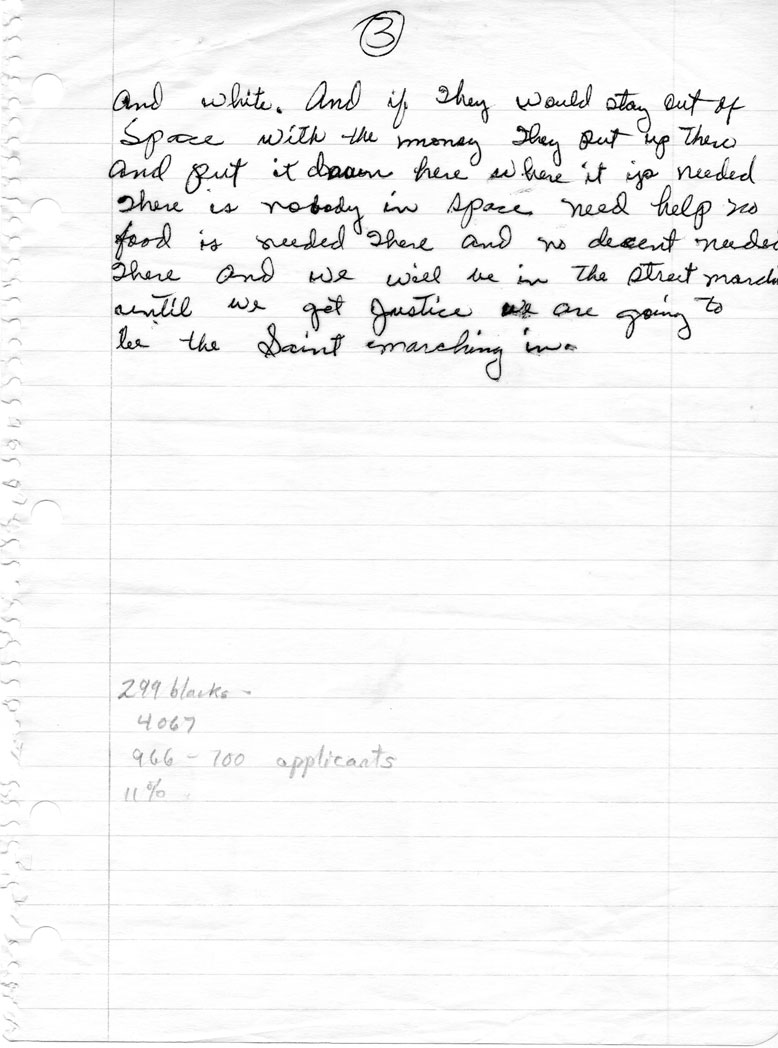 3
and white. And if They would stay out of
Space with the money They put up There
and put it down here where it is needed
There is nobody in space need help no
food is needed There and no decent needed
There and we will be in the street march
until we get Justice we are going to
be the Saint marching in.
299 blacks -
4067
966 - 700 applicants
11%